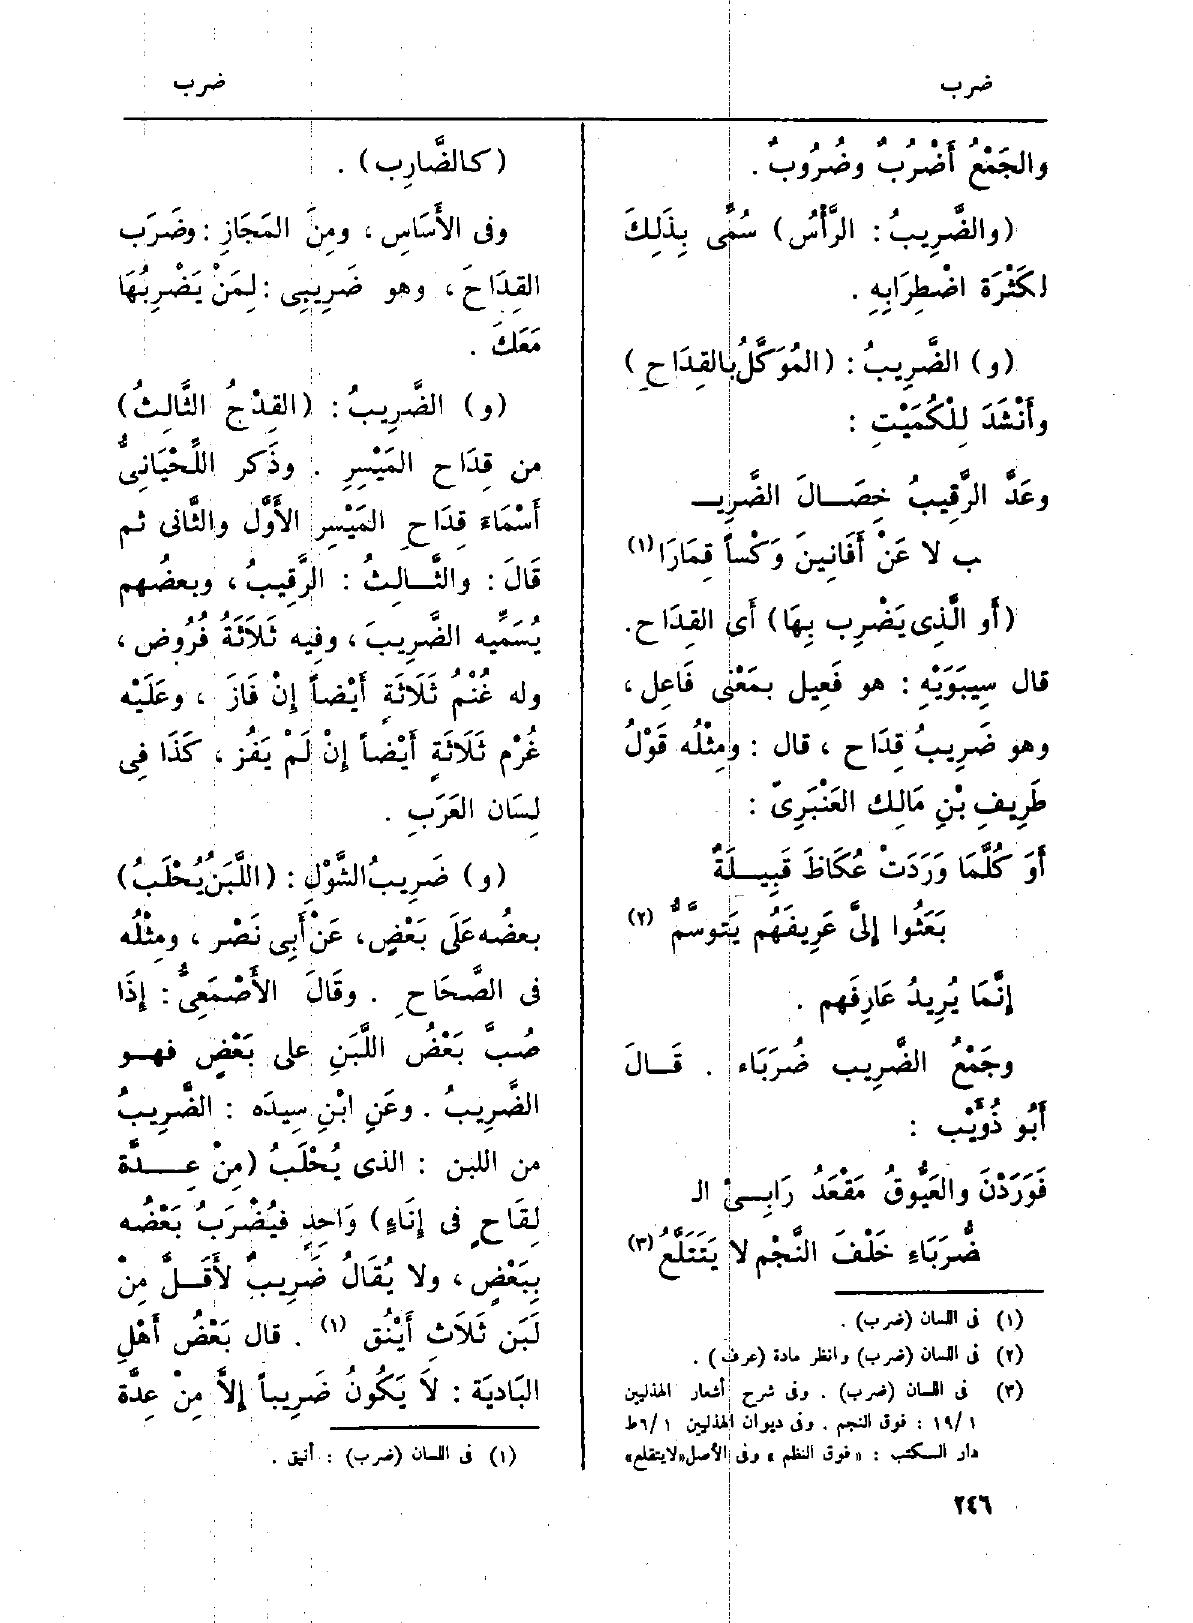 ضرب
ضرب
والجَمْعُ أَضْرُبٌ وضُرُوبٌ .
(والضَّرِيبُ : الرَّأْسُ) سُمِّى بِذَلِكَ
لكَثْرَة اضْطِرَابِهِ .
(و) الضَّرِيبُ : (المُوَكَّلُ بِالقِدَاحِ)
وأَنْشَدَ لِلْكُمَيْتِ :
وعَدَّ الرَّقِيبُ خِصَــالَ الضَّرِيـ
ـب لا عَنْ أَفَانِينَ وَكْساً قِمَارَا (١)
(أَو الَّذِى يَضْرِب بِهَا) أَى القِدَاح.
قال سِيبَوَيْهِ : هو فَعِيل بمَعْنَى فَاعِل ،
وهو ضَرِيبُ قِدَاح ، قال : ومِثْلُه قَوْلُ
طَرِيفِ بْنِ مَالِك العَنْبَرِىّ :
أَوَ كُلَّمَا وَرَدَتْ عُكَاظَ قَبِيــلَةٌ
بَعَثُوا إِلىَّ عَرِيفَهُم يَتَوسَّمُ (٢)
إِنَّمَا يُرِيدُ عَارِفَهم .
وجَمْعُ الضَّرِيب ضُرَبَاء . قَــالَ
أَبُو ذُؤَيْب :
فَوَرَدْنَ والعَيُّوقُ مَقْعَدُ رَابِــئْ الـ
ضُّرَبَاءِ خَلْفَ النَّجْمِ لا يَتَتَلَّعُ (٣)
(١) فى اللسان (ضرب) .
(٢) فى اللسان (ضرب) وانظر مادة (عرف) .
(٣) فى اللسان (ضرب) . وفى شرح أشعار الهذليين
١ /١٩ : فوق النجم . وفى ديوان الهذليين ١ /٦ ط
دار الـكتب : « فوق النظم » وفى الأصل «لايتقلع»
(كالضَّارِب) .
وفى الأَسَاسِ ، ومِنَ المَجَازِ : وضَرَب
القِدَاحَ ، وهو ضَرِيبِى : لِمَنْ يَضْرِبُهَا
مَعَكَ .
(و) الضَّرِيبُ : (القِدْحُ الثَّالِثُ)
من قِدَاح المَيْسِرِ . وذَكر اللِّحْيَانِىُّ
أَسْمَاءَ قِدَاحِ المَيْسِر الأَوَّل والثَّانى ثم
قَالَ : والثَّــالِثُ : الرَّقِيبُ ، وبعضُهم
يُسَمِّيه الضَّرِيبَ ، وفِيه ثَلَاثَةُ فُرُوض ،
وله غُنْمُ ثَلَاثَةٍ أَيْضاً إِنْ فَازَ ، وعَلَيْه
غُرْم ثَلَاثَةٍ أَيْضاً إِنْ لَمْ يَفُز ، كَذَا فِى
لِسَان العَرَبِ .
(و) ضَرِيبُ الشَّوْلِ : (اللَّبَنُ يُحْلَبُ)
بعضُه عَلَى بَعْضٍ، عَنْ أَبِى نَصْر ، ومِثْلُه
فى الصَّحَاحِ . وقَالَ الأَصْمَعِىُّ : إِذَا
صُبَّ بَعْضُ اللَّبَنِ على بَعْضٍ فهــو
الضَّرِيبُ . وعَنِ ابْنِ سِيدَه : الضَّرِيبُ
من اللبن : الذى يُحْلَبُ (مِنْ عِــدَّة
لِقَاحٍ فى إِنَاءٍ) وَاحِدٍ فيُضْرَبُ بَعْضُه
بِبَعْضٍ ، ولا يُقَالُ ضَرِيبٌ لأَقَــلَّ مِنْ
لَبَن ثَلَاث أَيْنُق (١) . قال بَعْضُ أَهْلِ
البَادِيَة : لَا يَكُونُ ضَرِيباً إِلاَّ مِنْ عِدَّة
(١) فى اللسان (ضرب) : أنيق .
٢٤٦